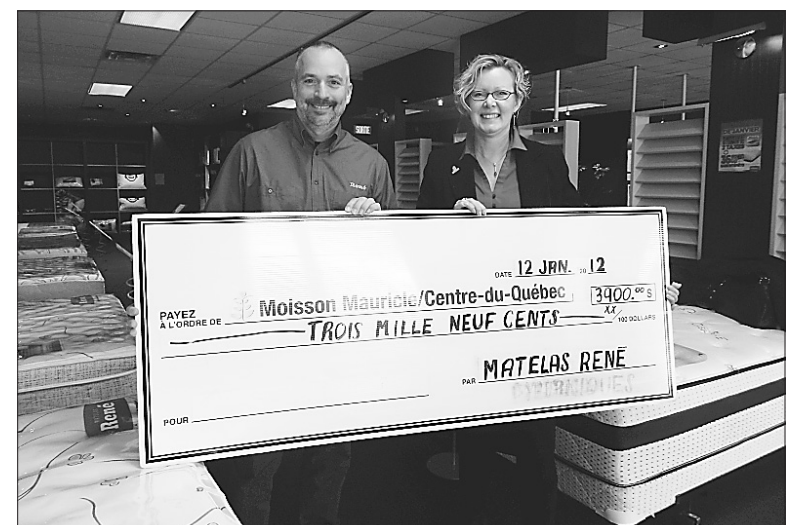 SORTIE
DATE 12 JAN. 20 12
PAYEZ
À L'ORDRE DE Moisson Mauricie/Centre-du-Québec 3900.00 $
TROIS MILLE NEUF CENTS XX/100 DOLLARS
PAR MATELAS RENÉ
POUR
René